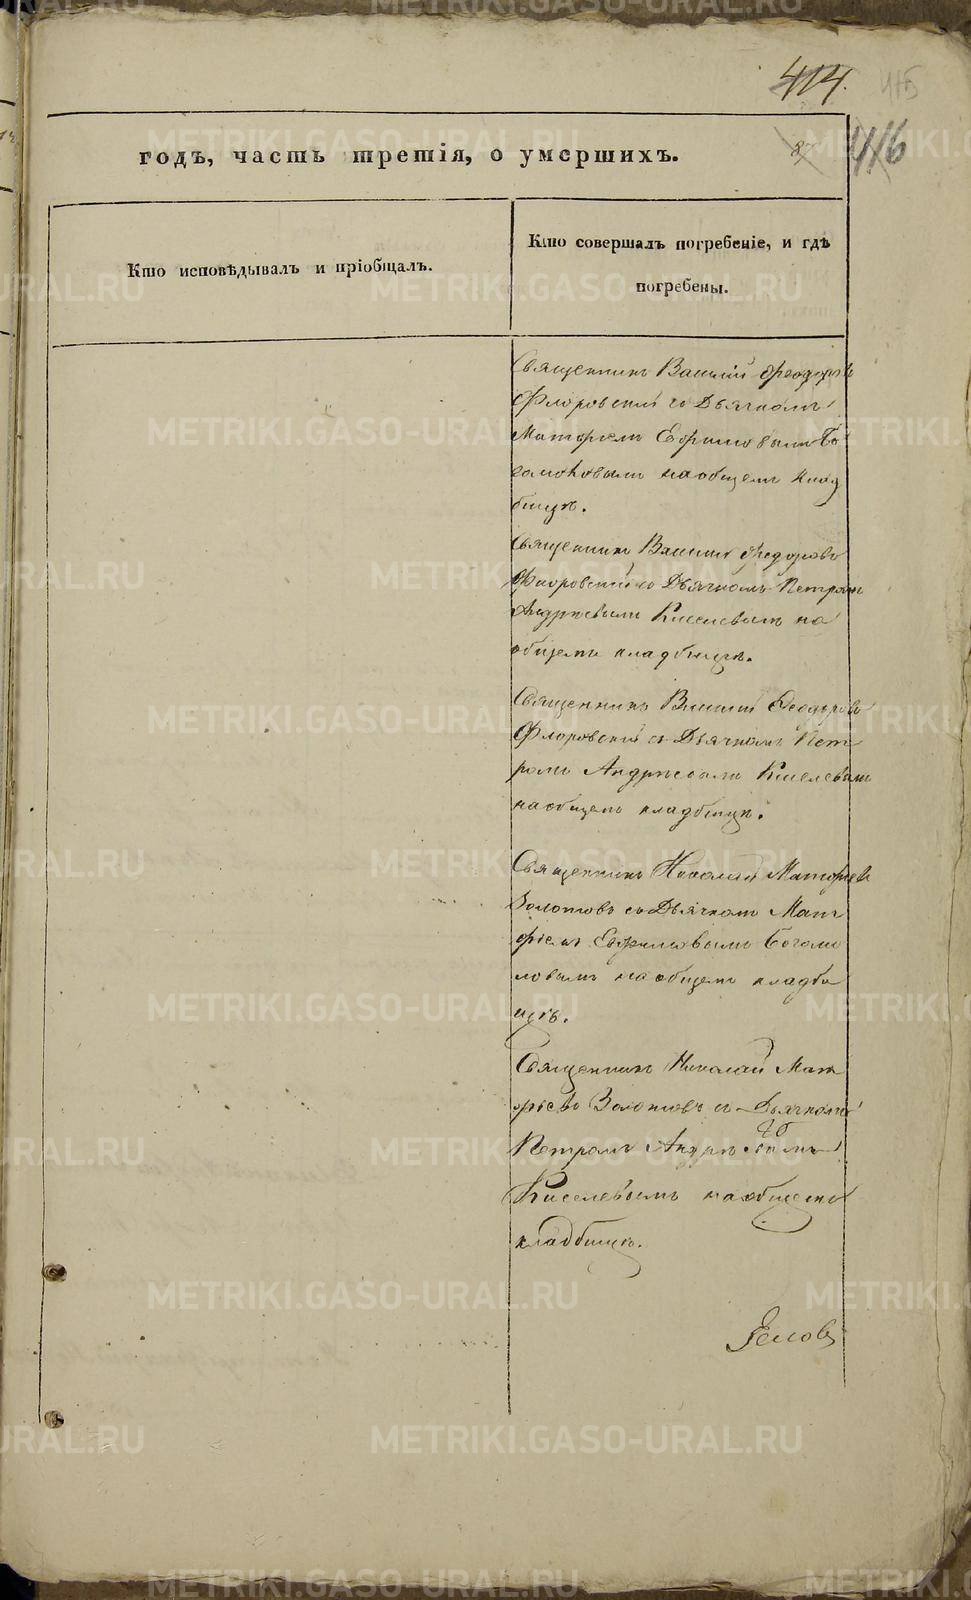 414.
415
87
416
годъ, часть третія, о умершихъ.
Кто исповѣдывалъ и пріобщалъ.
Кто совершалъ погребеніе, и гдѣ
погребены.
Священникъ Василій Феодоровъ
Флоровскій съ Дьячкомъ
Матфіемъ Ефимовымъ Бо
гомоловымъ на общемъ клад
бищѣ.
Священникъ Василій Федоровъ
Флоровскій со Дьячкомъ Петромъ
Андрѣевымъ Киселевымъ на
общемъ кладбищѣ.
Священникъ Василій Феодоровъ
Флоровскій съ Дьячкомъ Пет
ромъ Андрѣевымъ Киселевымъ
на общемъ кладбищѣ.
Священникъ Николай Матфіевъ
Золотовъ со Дьячкомъ Мат
фіемъ Ефимовымъ Богомо
ловымъ на общемъ кладби
щѣ.
Священникъ Николай Мат
фіевъ Золотовъ съ Дьячкомъ
Петромъ Андрѣевымъ
Киселевымъ на общемъ
кладбищѣ.
METRIKI.GASO-URAL.RU